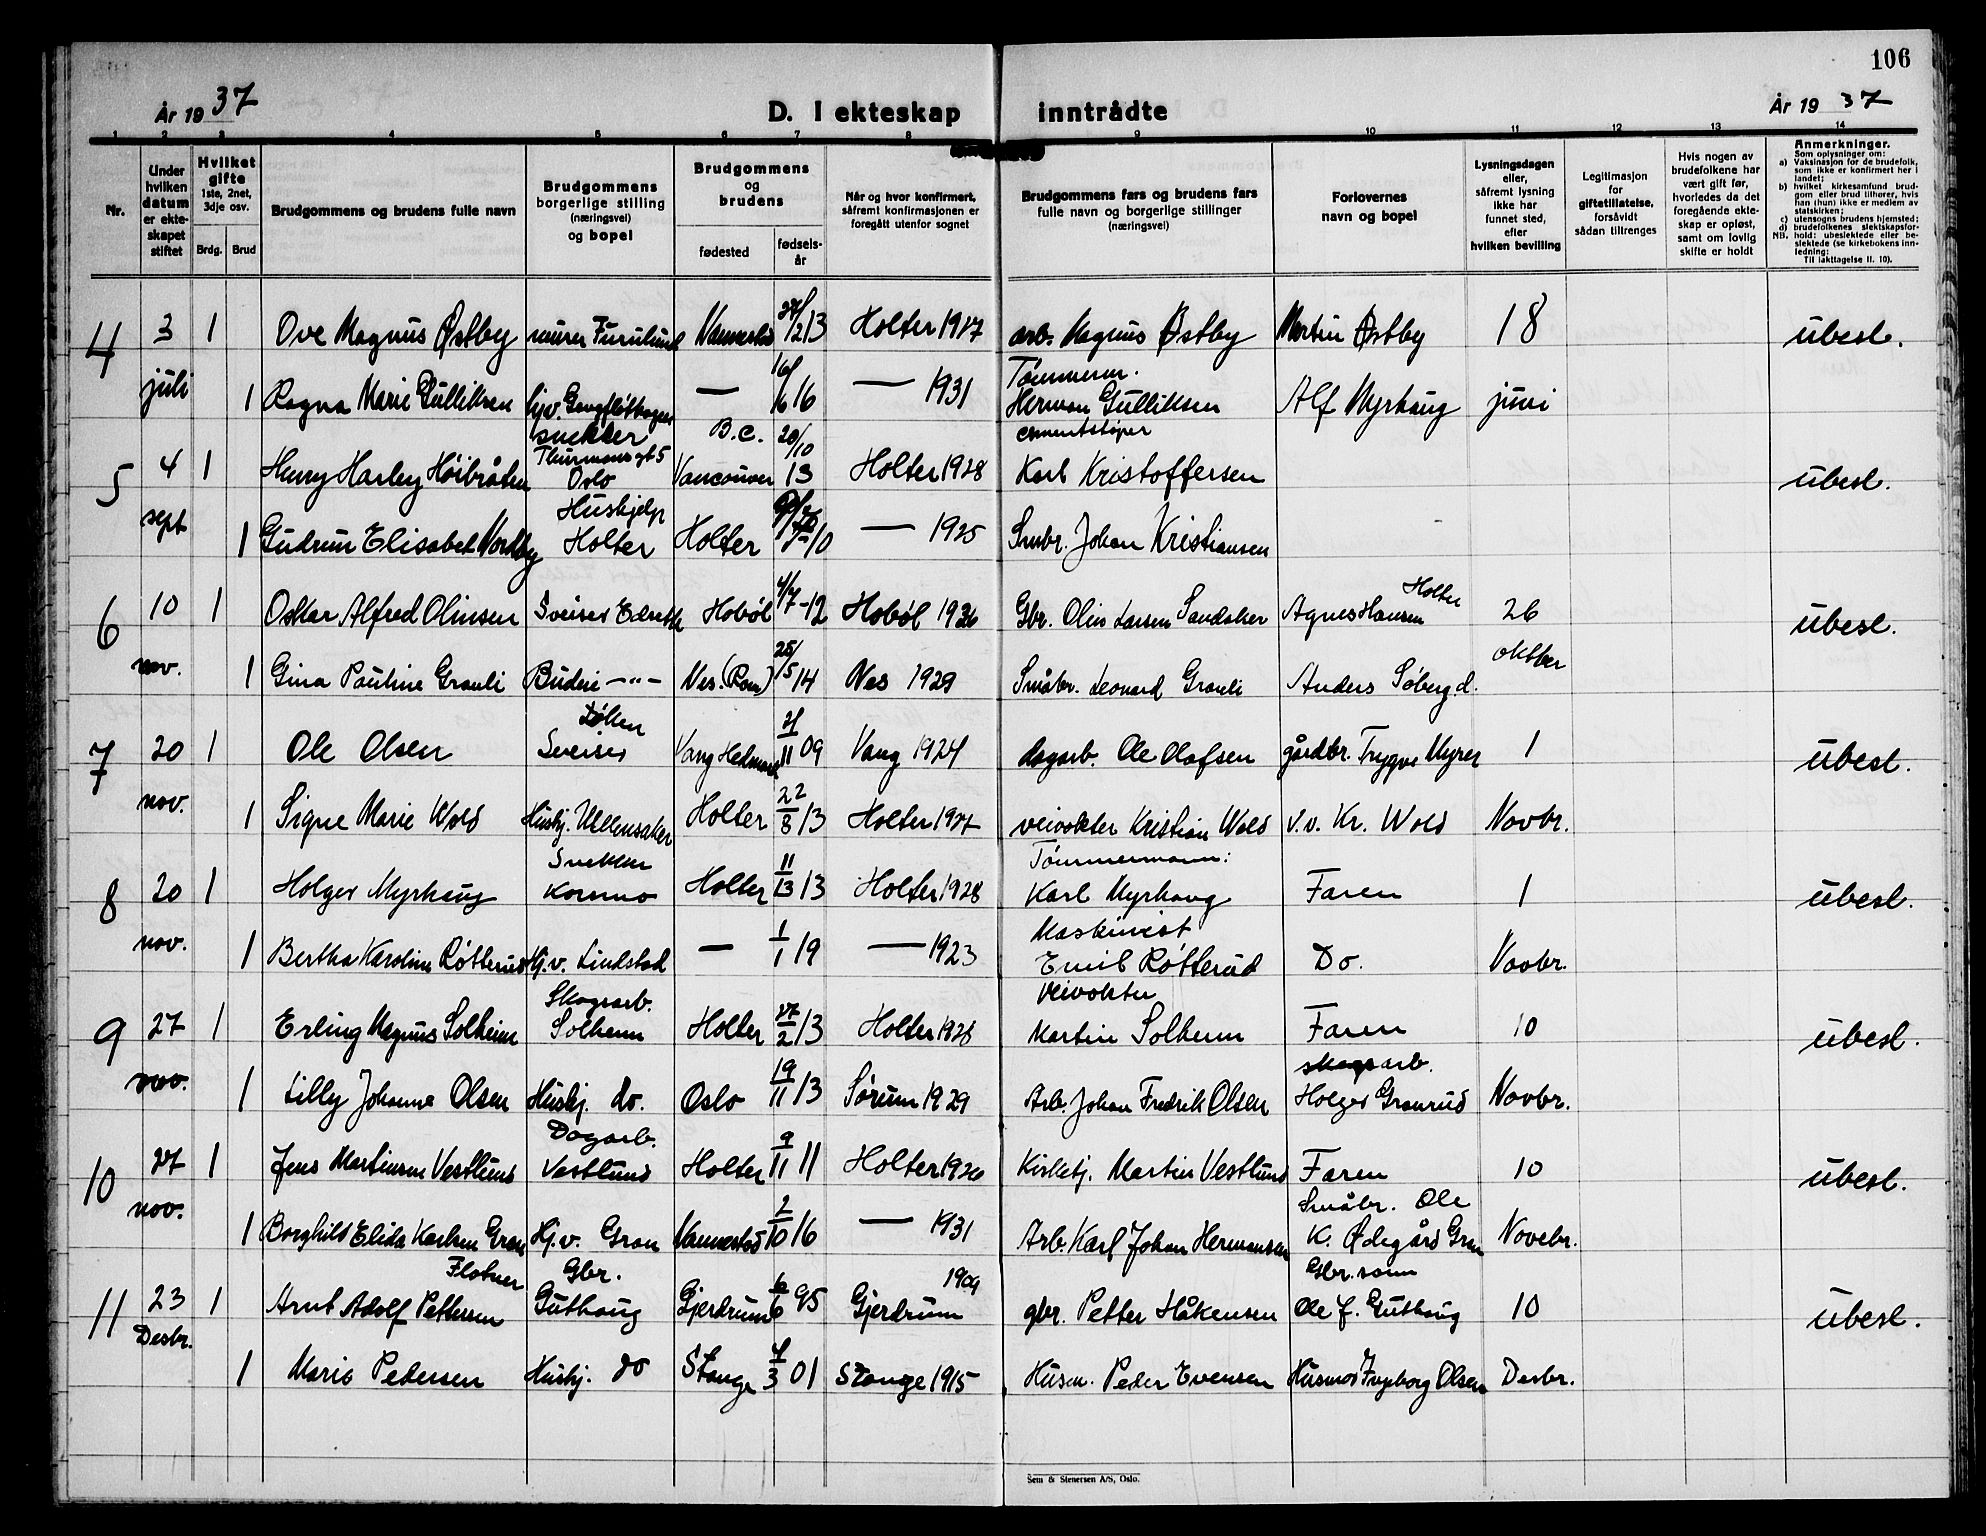 106
År 1937
D. I ekteskap inntrådte
År 1937
1 2 3 4 5 6 7 8 9 10 11 12 13 14
Nr.
Under hvilken datum er ekteskapet stiftet
Hvilket gifte 1ste, 2net, 3dje osv.
Brdg. Brud
Brudgommens og brudens fulle navn
Brudgommens borgerlige stilling (næringsvei) og bopel
Brudgommens og brudens
fødested fødselsår
Når og hvor konfirmert, såfremt konfirmasjonen er foregått utenfor sognet
Brudgommens fars og brudens fars fulle navn og borgerlige stillinger (næringsvei)
Forlovernes navn og bopel
Lysningsdagen eller, såfremt lysning ikke har funnet sted, efter hvilken bevilling
Legitimasjon for giftetillatelse, forsåvidt sådan tilrenges
Hvis nogen av brudefolkene har vært gift før, hvorledes da det foregående ekteskap er opløst, samt om lovlig skifte er holdt
Anmerkninger.
Som oplysninger om:
a) Vaksinasjon for de brudefolk, som ikke er konfirmert her i landet;
b) hvilket kirkesamfund brudgom eller brud tilhører, hvis han (hun) ikke er medlem av statskirken;
c) utensogns brudens hjemsted;
d) brudefolkenes slektskapsforhold: ubeslektede eller beslektede (se kirkebokens innledning:
NB.
Til iakttagelse II. 10).
4 3 1 Ove Magnus Østby murer Furulund 2/13 Holter 1927 arb. Magnus Østby Martin Østby 18 ubesl.
juli 1 Ragna Marie Gulliksen hjv. — 16/6 16 — 1931 Tømmerm. Herman Gulliksen Alf Myrhaug juni
5 4 1 Henry Harley Høibråten snekker Thurmansgt 5 Oslo B.C. Vancouver 20/10 13 Holter 1928 cementstøper Karl Kristoffersen ubesl.
sept 1 Gudrun Elisabet Nordby Hushjelp Holter Holter 10 — 1925 Smbr. Johan Kristiansen
6 10 1 Oskar Alfred Olinsen Sveiser Hobøl 4/7-12 Hobøl 1926 Gbr. Olin Larsen Sandaker Agnes Hansen Holter 26 ubesl.
nov. 1 Gina Pauline Granli Budeie —"— Nes (Rom) 25/5 14 Nes 1929 Småbr. Leonard Granli Anders Søberg d. oktber
7 20 1 Ole Olsen Løken Sveiser Vang Hedmark 11 09 Vang 1924 dagarb. Ole Olafsen gårdbr. Trygve Myrer 1 ubesl.
nov. 1 Signe Marie Wold Husbj. Ullensaker Holter 22/8/13 Holter 1927 veivokter Kristian Wold v.v. Kr. Wold Novbr.
8 20 1 Holger Myrhaug Snekker Korsmo Holter 11/13 13 Holter 1928 Tømmermann: Karl Myrhaug Faren 1 ubesl.
nov. 1 Bertha Karoline Røtterud Hj.v. Lindstad — 1/1 19 — 1923 Maskinist Emil Røtterud Do. Novbr.
9 27 1 Erling Magnus Solheim Skogsarb. Solheim Holter 27/2/13 Holter 1928 Veivokter Martin Solheim Faren 10 ubesl.
nov. 1 Lilly Johanne Olsen Husbj. do. Oslo 19/11/13 Sørum 1929 Arb. Johan Fredrik Olsen skogsarb. Holger Granrud Novbr.
10 27 1 Jens Martinsen Vestlund Dagarb. Vestlund Holter 9/11 11 Holter 1926 Kirketj. Martin Vestlund Faren 10 ubesl.
nov. 1 Borghild Elida Karlsen Gran Hj.v. Gran 2/10 16 — 1931 Arb. Karl Johan Hermansen Småbr. Ole K. Ødegård Gran Novebr.
11 23 1 Arnt Adolf Pettersen Flatner Gbr. Guthaug Gjerdrum 6/6 95 Gjerdrum 1909 gbr. Petter Håkensen Gbr. sønn Ole J. Guthaug 10 ubesl.
Desbr. 1 Marie Pedersen Husbj. do Stange 3 01 Stange 1915 Husm. Peder Evensen Husmor Ingeborg Olsen Desbr.
Sem & Stenersen A/S, Oslo.